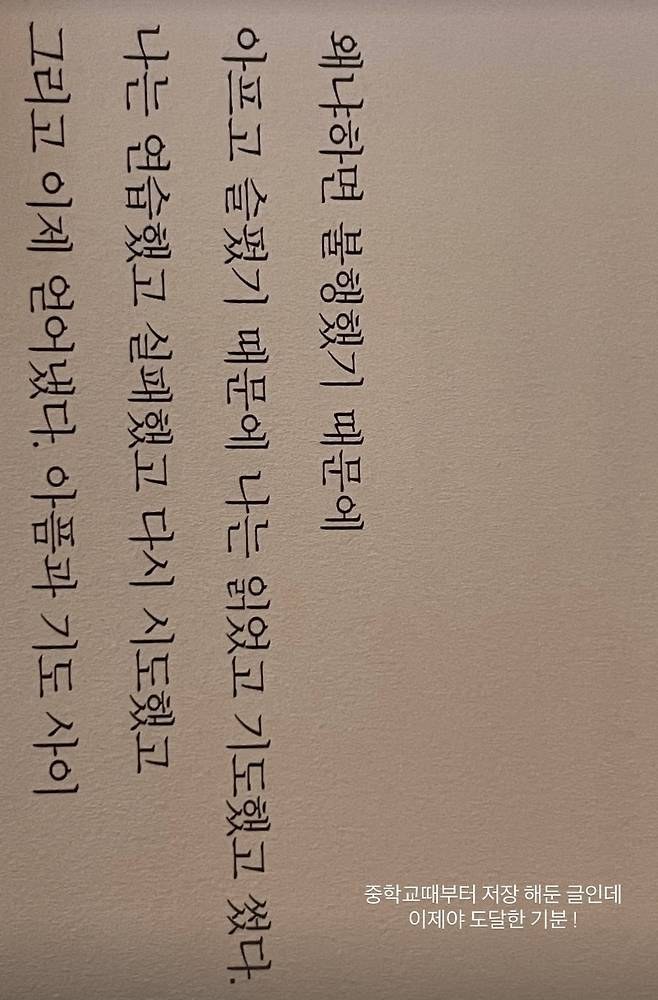 왜냐하면 불행했기 때문에
아프고 슬펐기 때문에 나는 읽었고 기도했고 썼다.
나는 연습했고 실패했고 다시 시도했고
그리고 이제 얻어냈다. 아픔과 기도 사이
중학교때부터 저장 해둔 글인데
이제야 도달한 기분 !